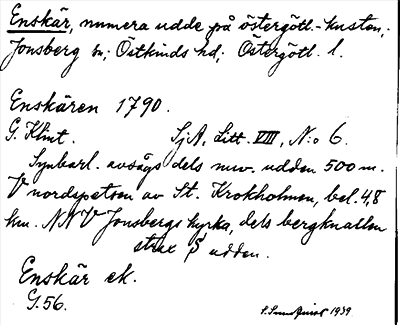 Enskär, numera udde på östergötl.-kusten,
Jonsberg sn; Östkinds hd; Östergötl. l.
Enskären 1790.
G. Klint. SjA, Litt. VIII, N:o 6.
Synbarl. avsågs dels nuv. udden 500 m.
V nordspetsen av St. Krokholmen, bel. 4,8
km. NNV Jonsbergs kyrka, dels bergknallen
strax S udden.
Enskär ek.
G. 56.
1939